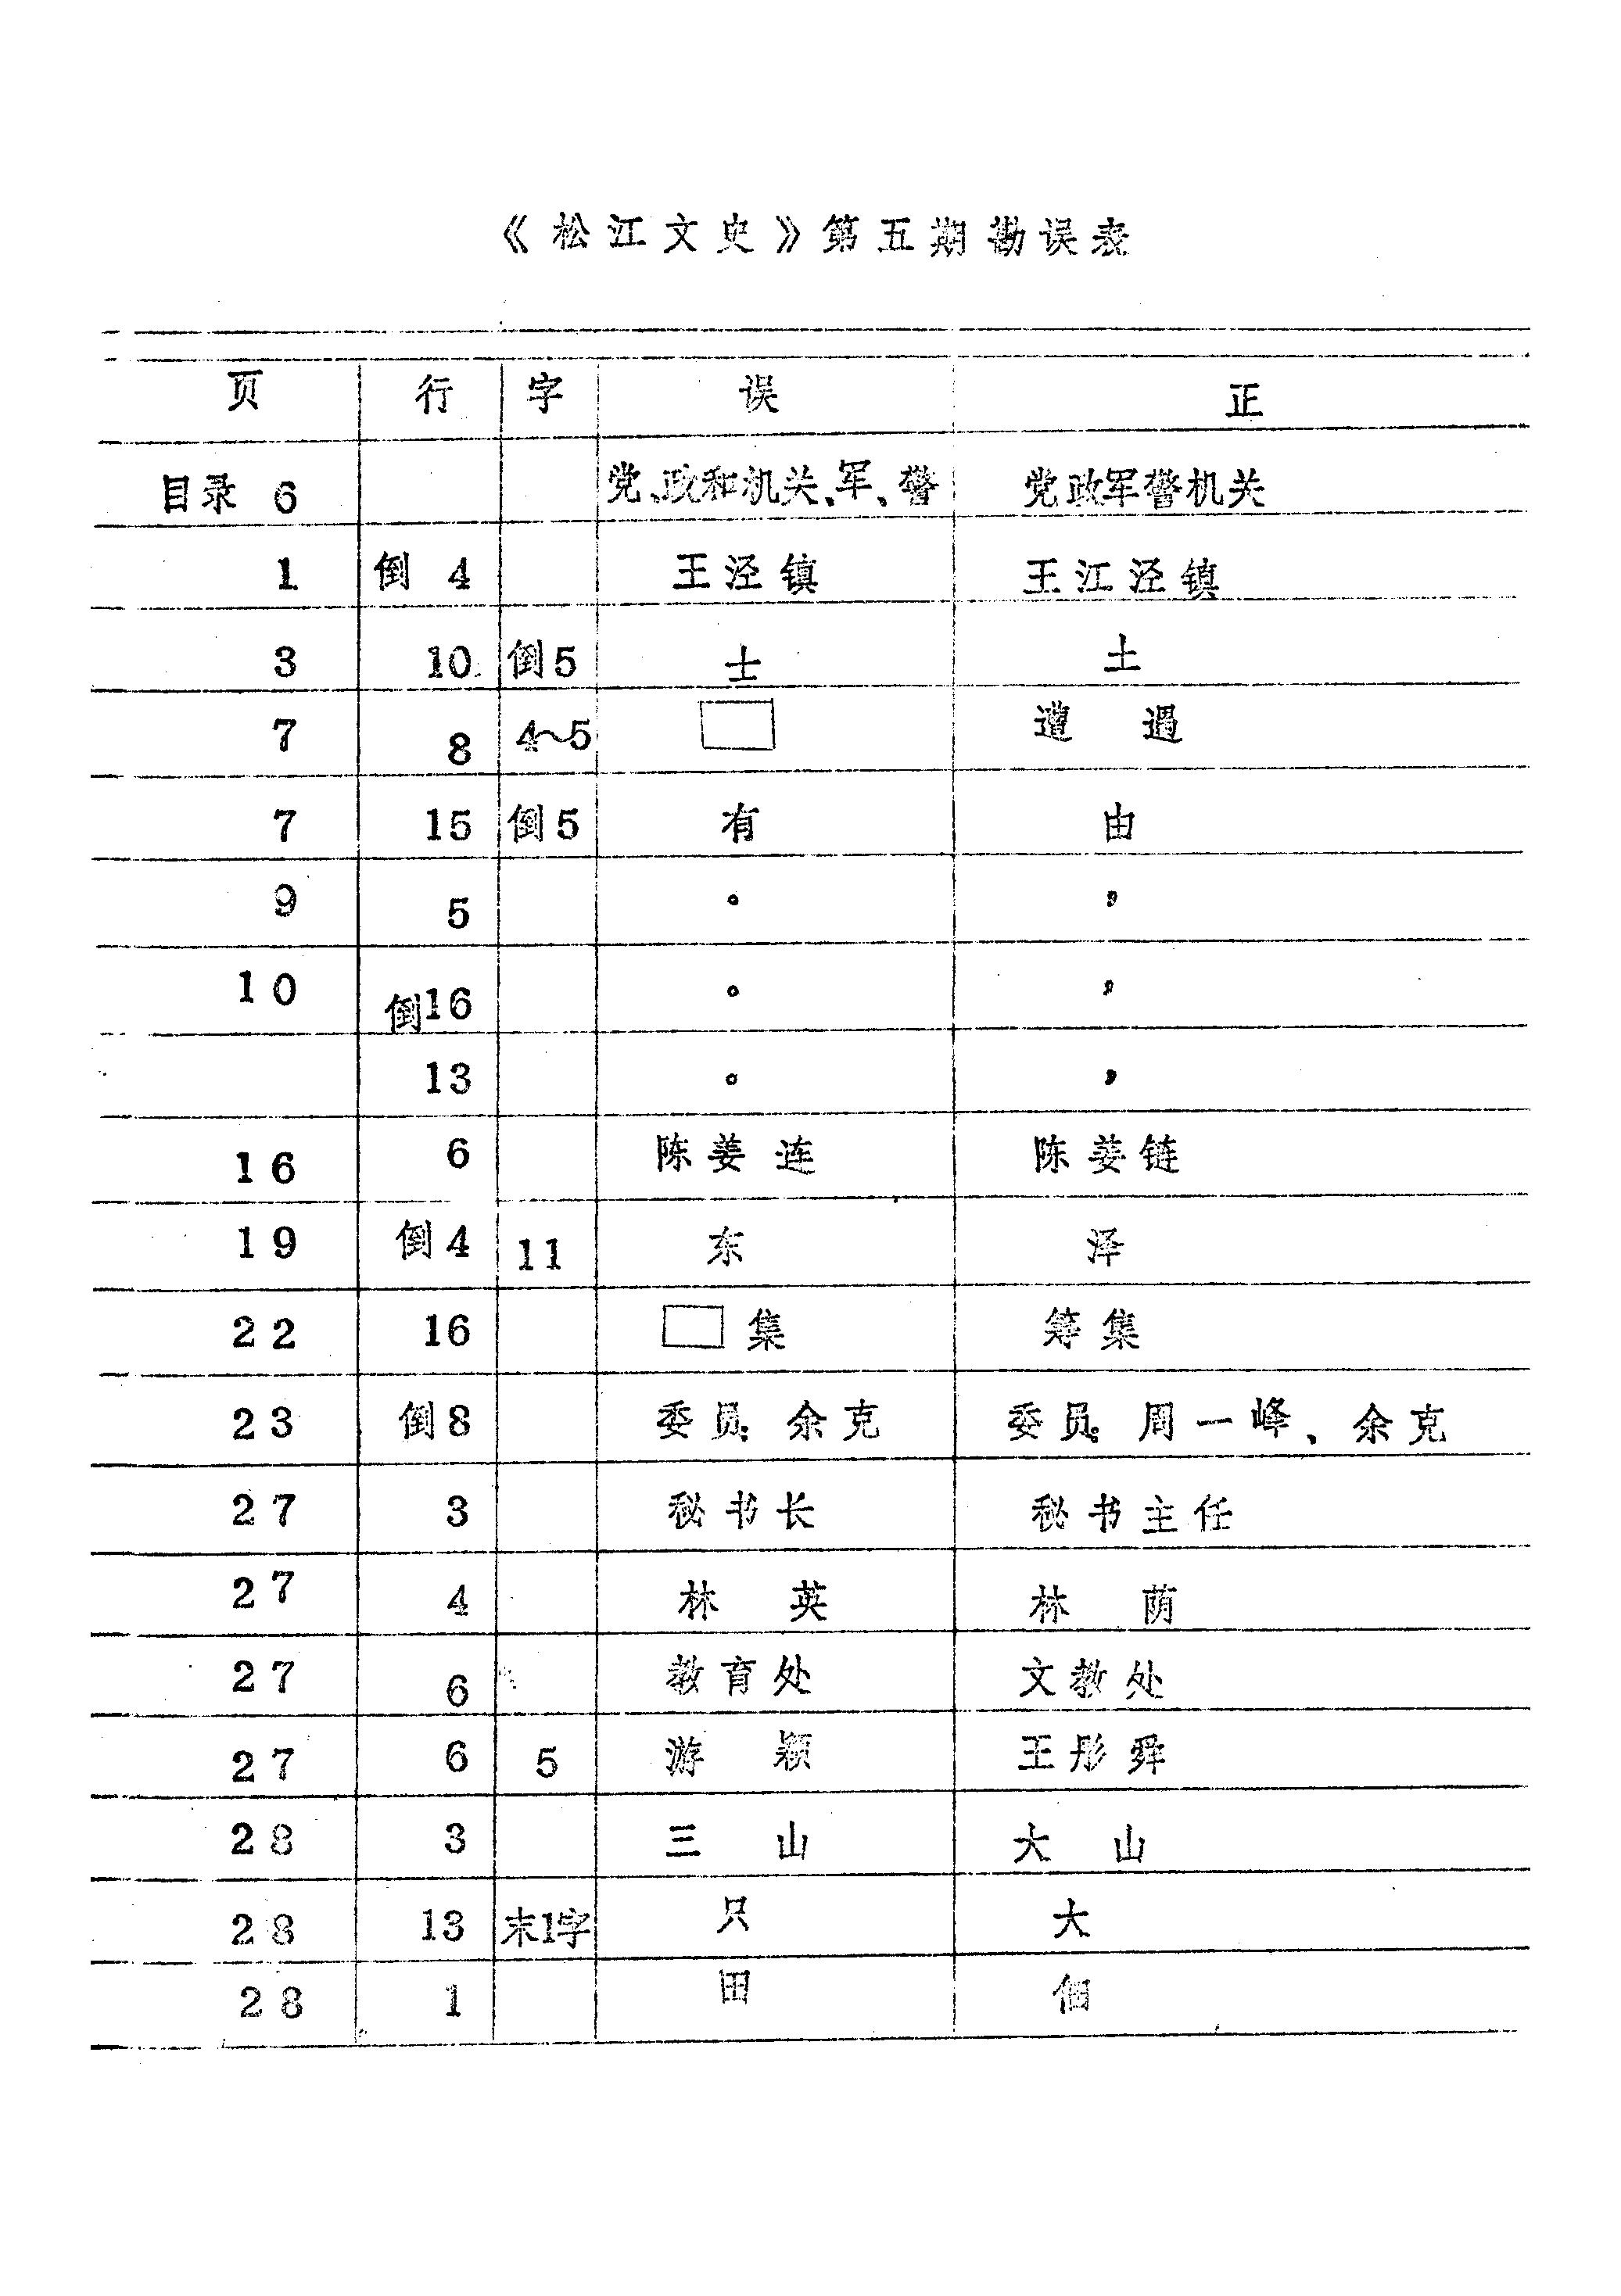 《松江文史》第五期勘误表
页 行 字 误 正
目录 6 党、政和机关、军、警 党政军警机关
1 倒 4 王泾镇 王江泾镇
3 10 倒5 士 土
7 8 4～5 □ 遭 遇
7 15 倒5 有 由
9 5 。 ，
10 倒16 。 ，
13 。 ，
16 6 陈姜连 陈姜链
19 倒4 11 东 泽
22 16 □集 筹集
23 倒8 委员：余克 委员：周一峰、余克
27 3 秘书长 秘书主任
27 4 林 英 林 荫
27 6 教育处 文教处
27 6 5 游 颖 王彤舜
28 3 三 山 大 山
28 13 末1字 只 大
28 1 田 佃